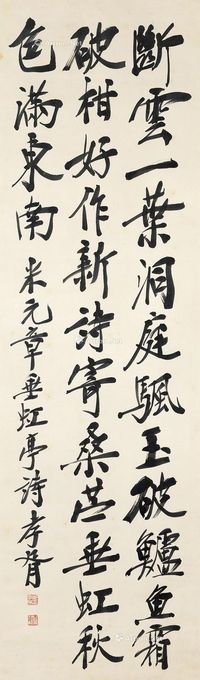 斷雲一葉洞庭颿玉破鱸魚霜
破柑好作新詩寄桑苧垂虹秋
色滿東南 米元章垂虹亭詩 孝胥